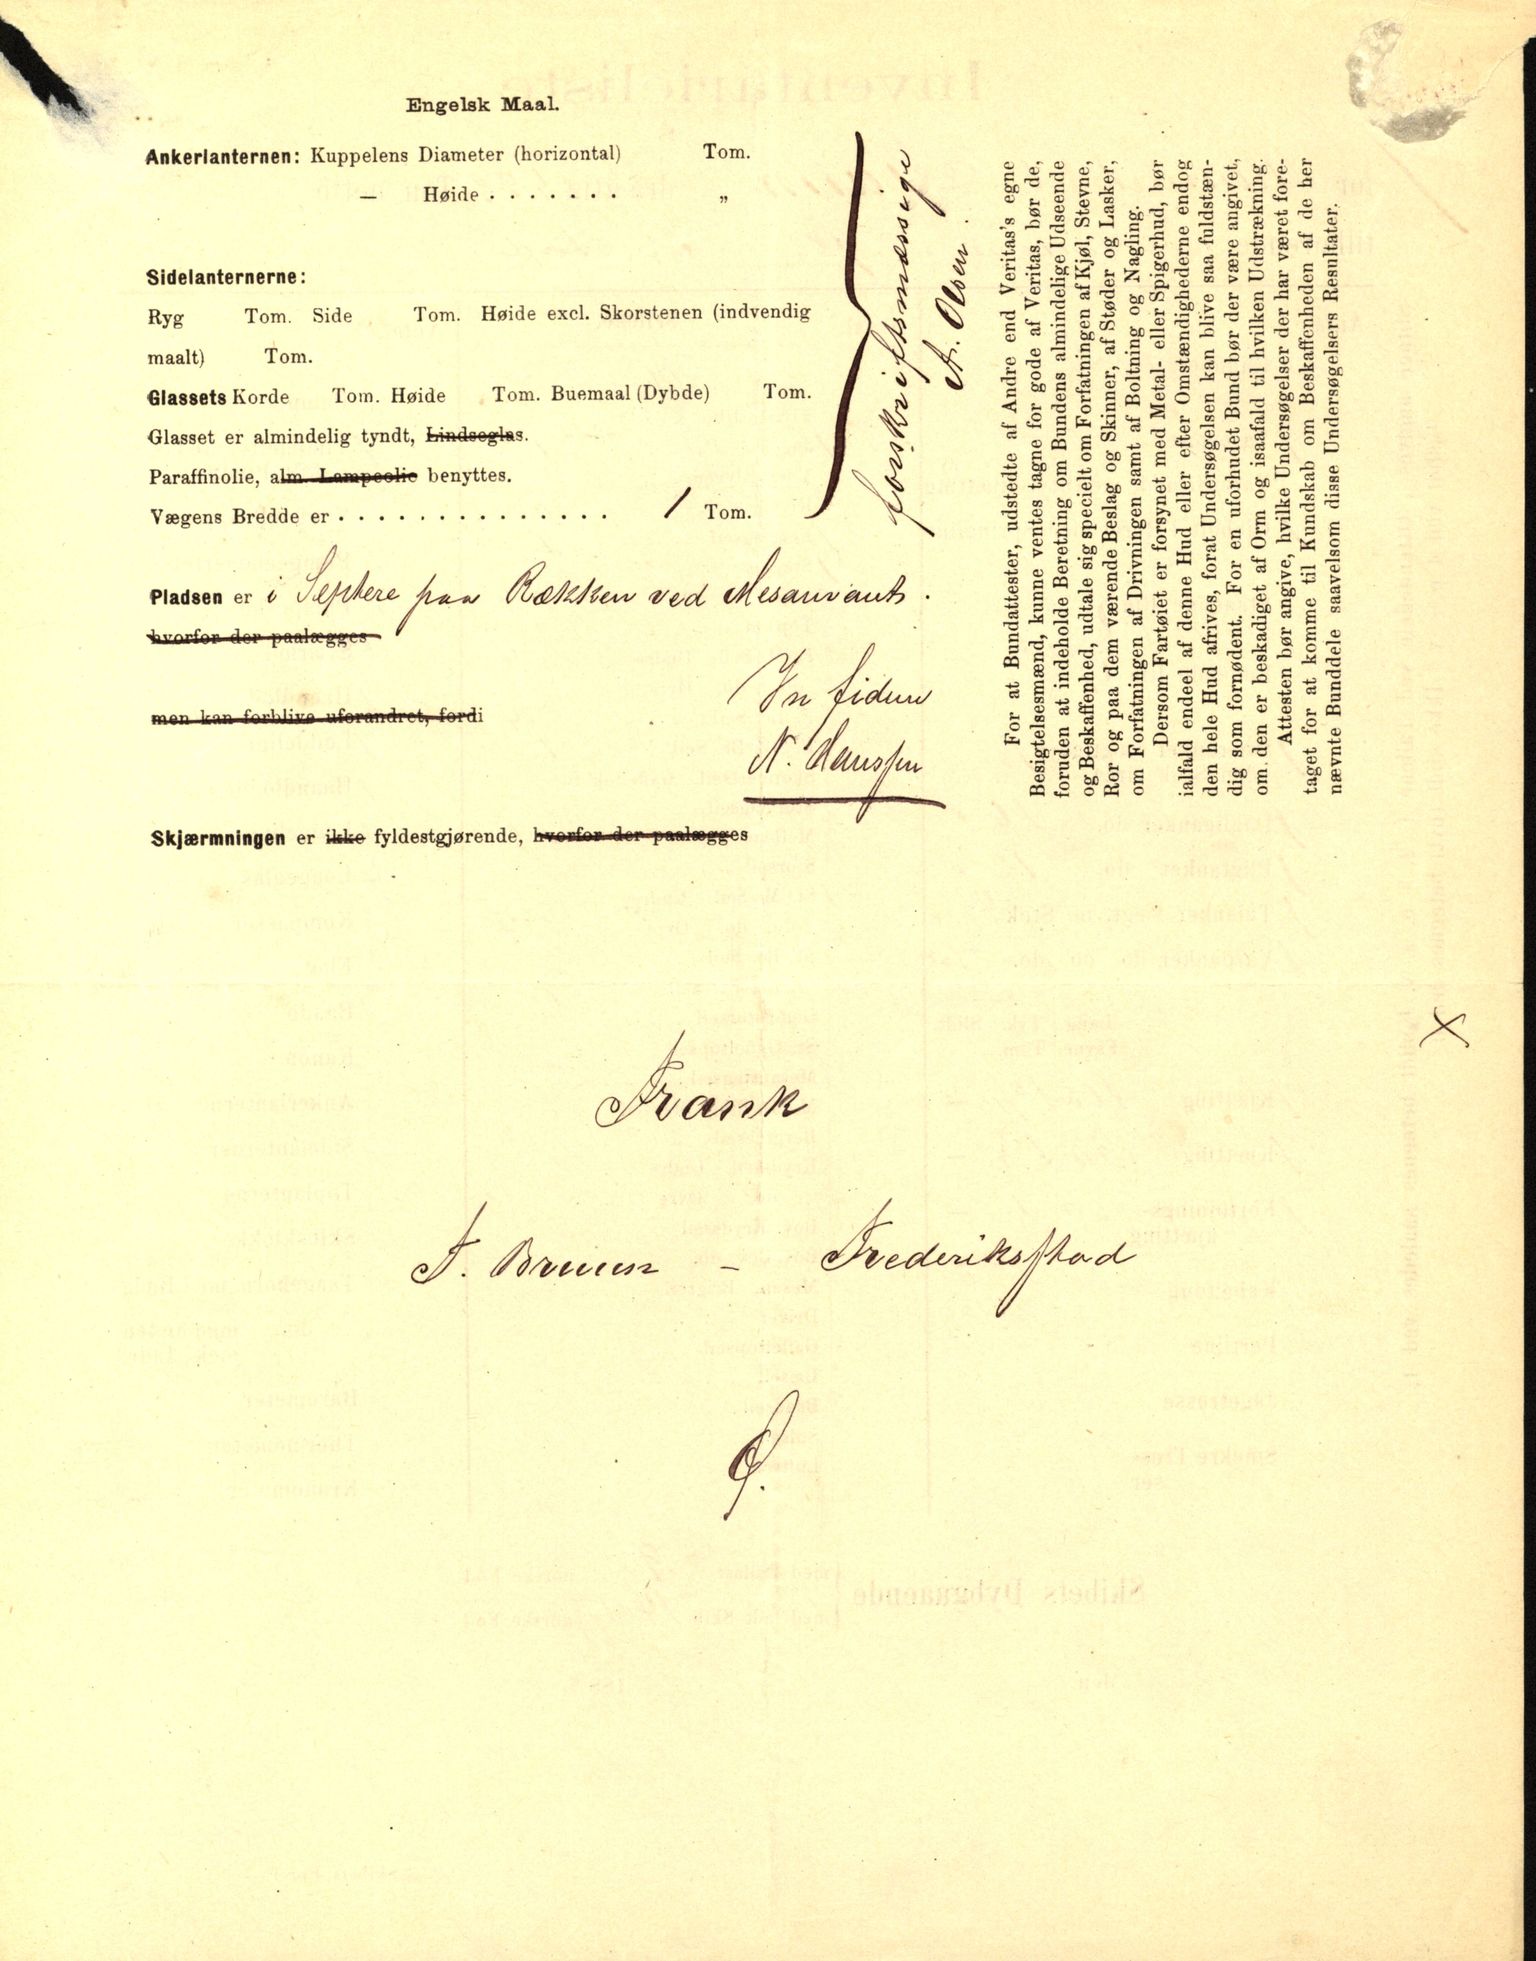 Engelsk Maal.
Ankerlanternen: Kuppelens Diameter (horizontal) Tom.
— Høide . . . . . . . „
Sidelanternerne:
Ryg Tom. Side Tom. Høide excl. Skorstenen (indvendig
maalt) Tom.
Glassets Korde Tom. Høide Tom. Buemaal (Dybde) Tom.
Glasset er almindelig tyndt, Lindseglas.
Paraffinolie, alm. Lampeolie benyttes.
Vægens Bredde er . . . . . . . . . . . . . . 1 Tom.
forskriftsmæssige
A. Olsen.
Pladsen er i Septere paa Rækken ved Mesanvants.
hvorfor der paalægges
men kan forblive uforandret, fordi
In fidem
N. Hanssen
Skjærmningen er ikke fyldestgjørende, hvorfor der paalægges
For at Bundattester, udstedte af Andre end Veritas's egne
Besigtelsesmænd, kunne ventes tagne for gode af Veritas, bør de,
foruden at indeholde Beretning om Bundens almindelige Udseende
og Beskaffenhed, udtale sig specielt om Forfatningen af Kjøl, Stevne,
Ror og paa dem værende Beslag og Skinner, af Støder og Lasker,
om Forfatningen af Drivningen samt af Boltning og Nagling.
Dersom Fartøiet er forsynet med Metal- eller Spigerhud, bør
ialfald endeel af denne Hud eller efter Omstændighederne endog
den hele Hud afrives, forat Undersøgelsen kan blive saa fuldstæn-
dig som fornødent. For en uforhudet Bund bør der være angivet,
om den er beskadiget af Orm og isaafald til hvilken Udstrækning.
Attesten bør angive, hvilke Undersøgelser der har været fore-
taget for at komme til Kundskab om Beskaffenheden af de her
nævnte Bunddele saavelsom disse Undersøgelsers Resultater.
X
Frank
F. Bruun – Frederiksstad
Ø.